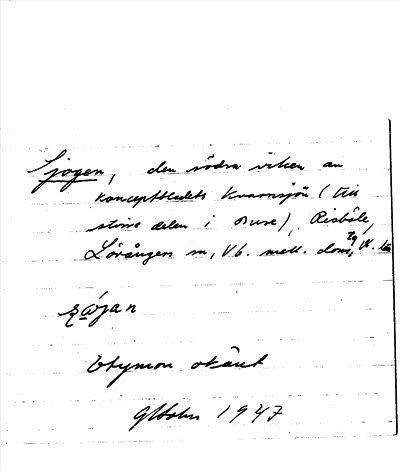 Sjögen, den södra viken av
konceptbladets Kvarnsjön (till
större delen i Bure), Risböle,
Lövångers sn, Vb. mell. dom,
Etymon okänt
G Holm 1947